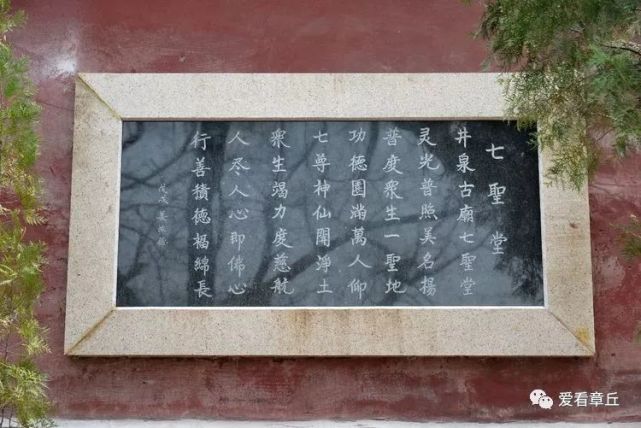 七聖堂
井泉古廟七聖堂
灵光普照美名揚
普度眾生一聖地
功德圓滿萬人仰
七尊神仙開淨土
眾生竭力度慈航
人尽人心即佛心
行善積德福綿長
戊戌
爱看章丘